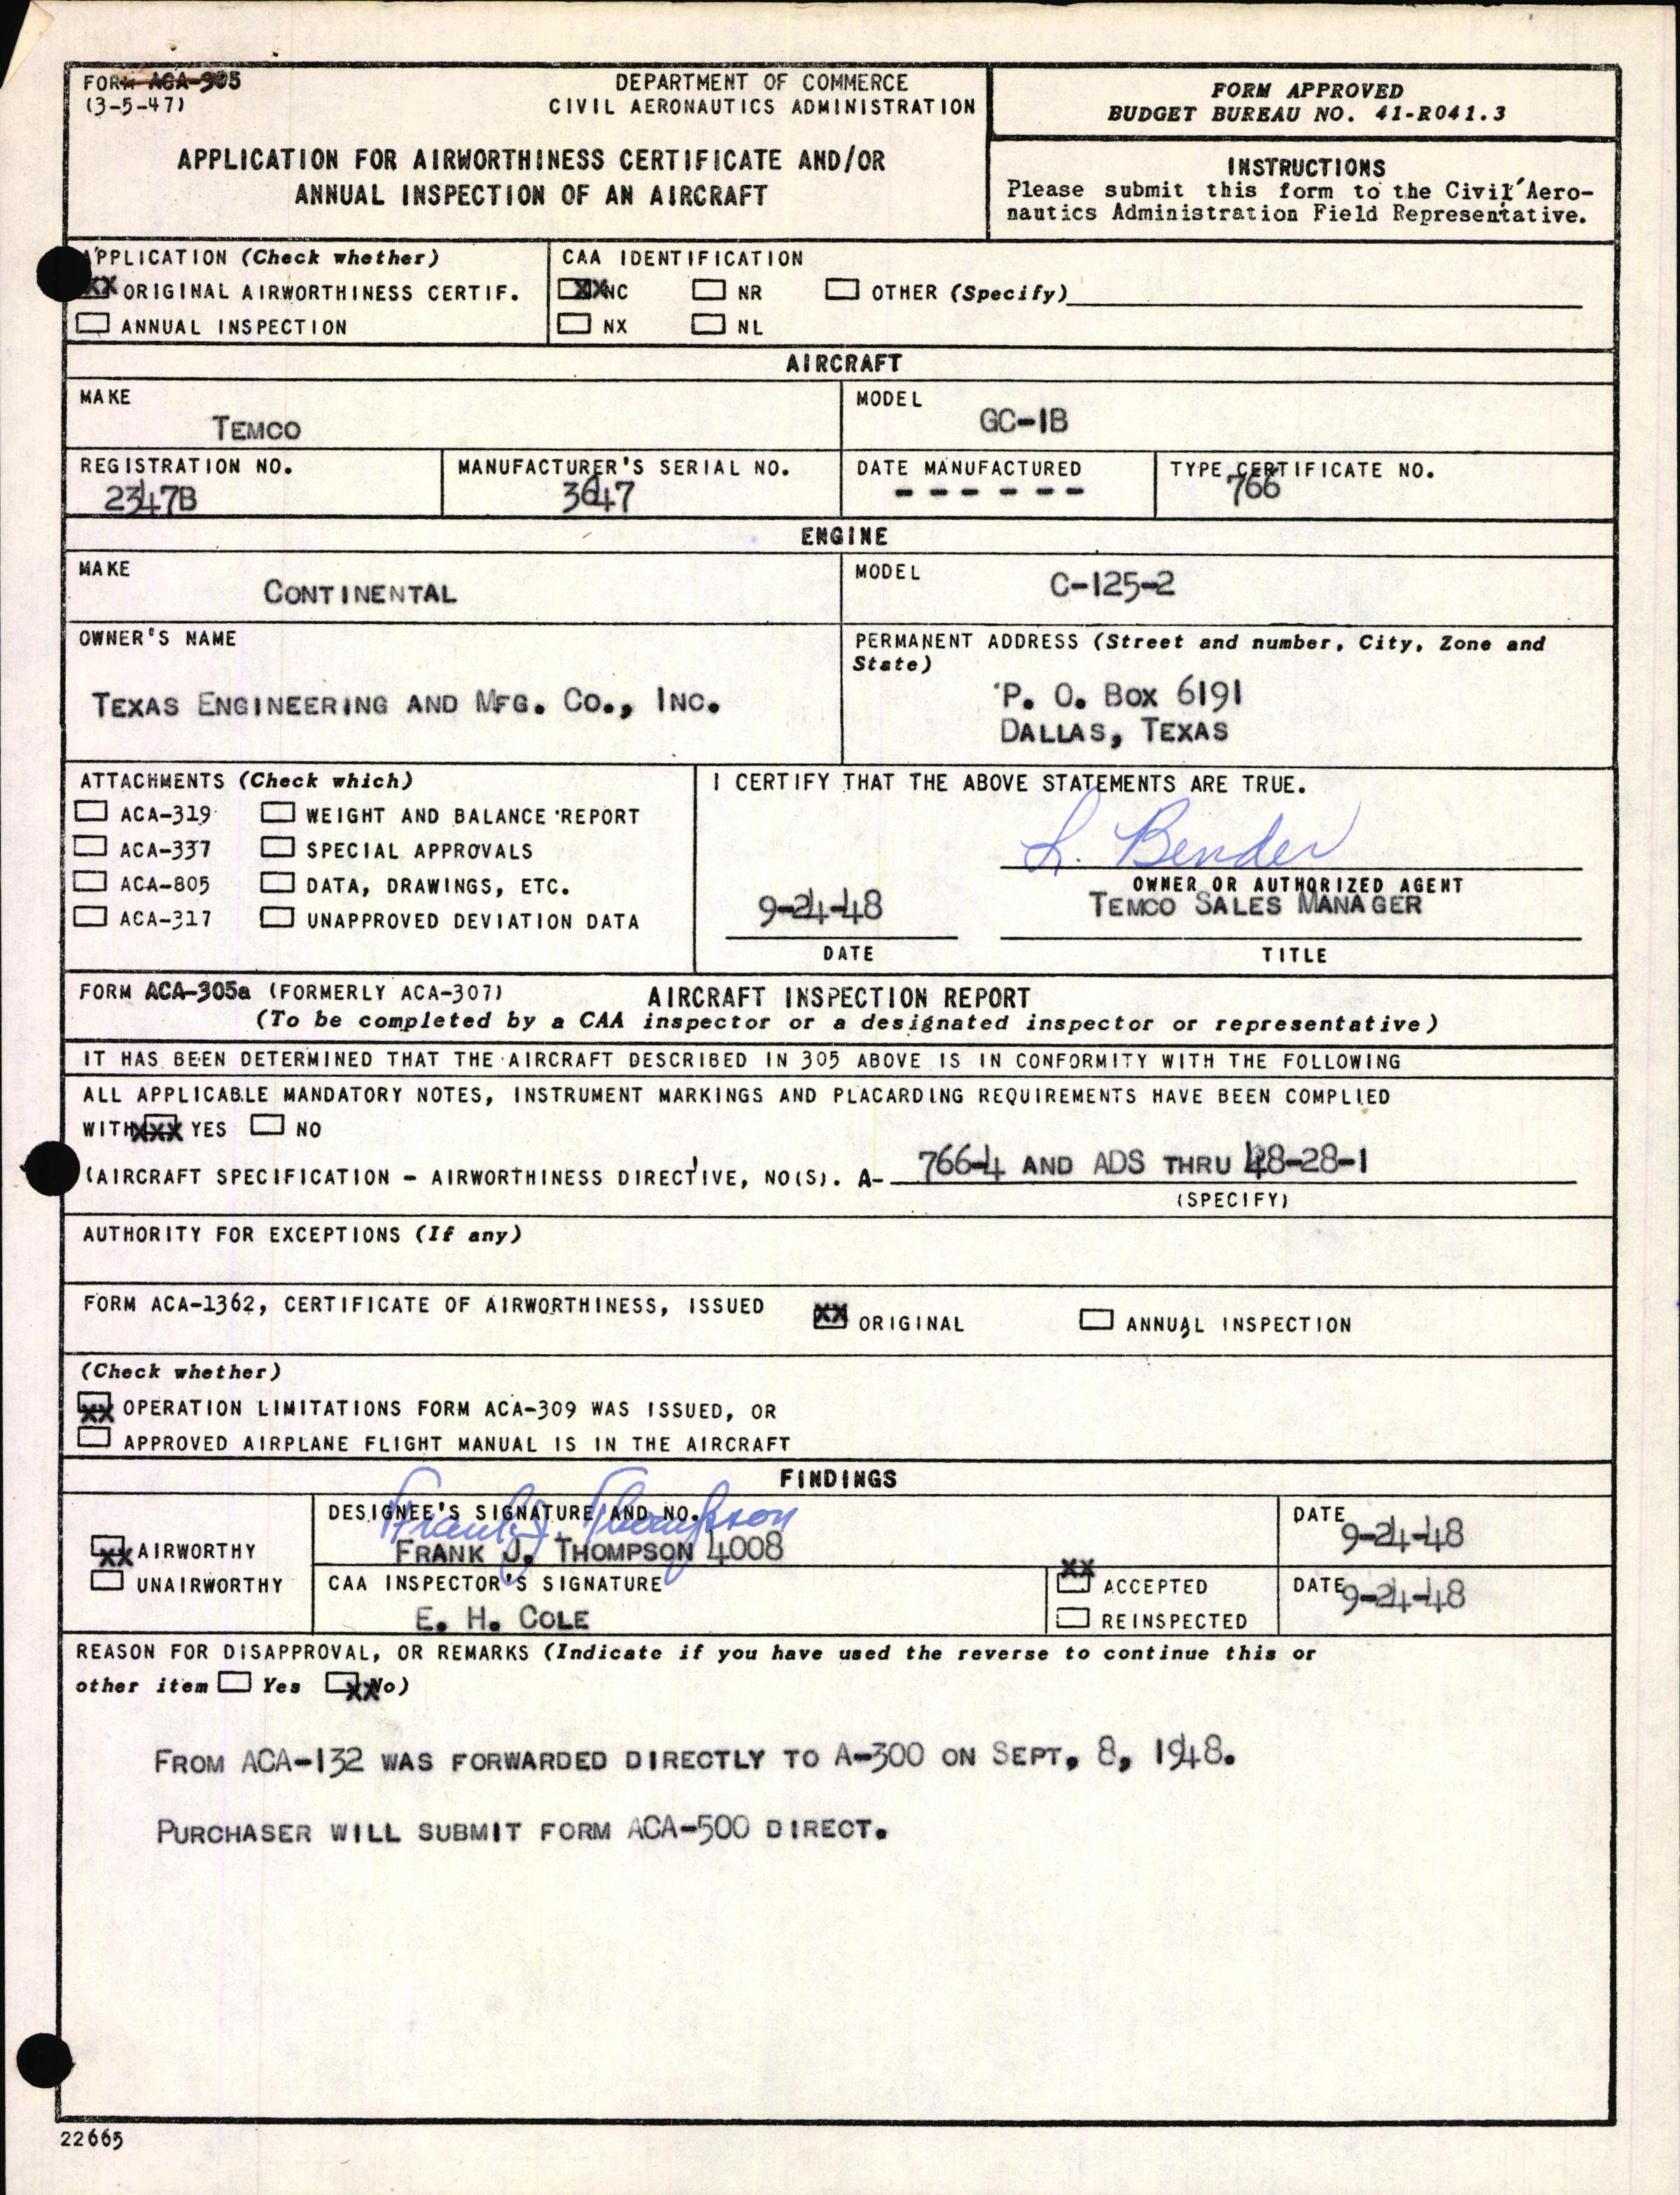 FORM ACA-305
(3-5-47)
DEPARTMENT OF COMMERCE
CIVIL AERONAUTICS ADMINISTRATION
APPLICATION FOR AIRWORTHINESS CERTIFICATE AND/OR
ANNUAL INSPECTION OF AN AIRCRAFT
FORM APPROVED
BUDGET BUREAU NO. 41-R041.3
INSTRUCTIONS
Please submit this form to the Civil Aero-
nautics Administration Field Representative.
APPLICATION (Check whether)
XX ORIGINAL AIRWORTHINESS CERTIF.
ANNUAL INSPECTION
CAA IDENTIFICATION
XX NC NR OTHER (Specify)
NX NL
AIRCRAFT
MAKE
TEMCO
MODEL
GC-1B
REGISTRATION NO.
2347B
MANUFACTURER'S SERIAL NO.
3647
DATE MANUFACTURED
- - - - - -
TYPE CERTIFICATE NO.
766
ENGINE
MAKE
CONTINENTAL
MODEL
C-125-2
OWNER'S NAME
TEXAS ENGINEERING AND MFG. CO., INC.
PERMANENT ADDRESS (Street and number, City, Zone and
State)
P. O. BOX 6191
DALLAS, TEXAS
ATTACHMENTS (Check which)
ACA-319 WEIGHT AND BALANCE REPORT
ACA-337 SPECIAL APPROVALS
ACA-805 DATA, DRAWINGS, ETC.
ACA-317 UNAPPROVED DEVIATION DATA
I CERTIFY THAT THE ABOVE STATEMENTS ARE TRUE.
L. Bender
OWNER OR AUTHORIZED AGENT
9-24-48
TEMCO SALES MANAGER
DATE
TITLE
FORM ACA-305a (FORMERLY ACA-307) AIRCRAFT INSPECTION REPORT
(To be completed by a CAA inspector or a designated inspector or representative)
IT HAS BEEN DETERMINED THAT THE AIRCRAFT DESCRIBED IN 305 ABOVE IS IN CONFORMITY WITH THE FOLLOWING
ALL APPLICABLE MANDATORY NOTES, INSTRUMENT MARKINGS AND PLACARDING REQUIREMENTS HAVE BEEN COMPLIED
WITH XXX YES NO
(AIRCRAFT SPECIFICATION - AIRWORTHINESS DIRECTIVE, NO(S). A- 766-4 AND ADS THRU 48-28-1
(SPECIFY)
AUTHORITY FOR EXCEPTIONS (If any)
FORM ACA-1362, CERTIFICATE OF AIRWORTHINESS, ISSUED XX ORIGINAL ANNUAL INSPECTION
(Check whether)
XX OPERATION LIMITATIONS FORM ACA-309 WAS ISSUED, OR
APPROVED AIRPLANE FLIGHT MANUAL IS IN THE AIRCRAFT
FINDINGS
XX AIRWORTHY
UNAIRWORTHY
DESIGNEE'S SIGNATURE AND NO.
Frank J. Thompson
FRANK J. THOMPSON 4008
DATE
9-24-48
CAA INSPECTOR'S SIGNATURE
E. H. COLE
XX ACCEPTED
REINSPECTED
DATE
9-24-48
REASON FOR DISAPPROVAL, OR REMARKS (Indicate if you have used the reverse to continue this or
other item Yes XX No)
FROM ACA-132 WAS FORWARDED DIRECTLY TO A-300 ON SEPT. 8, 1948.
PURCHASER WILL SUBMIT FORM ACA-500 DIRECT.
22665